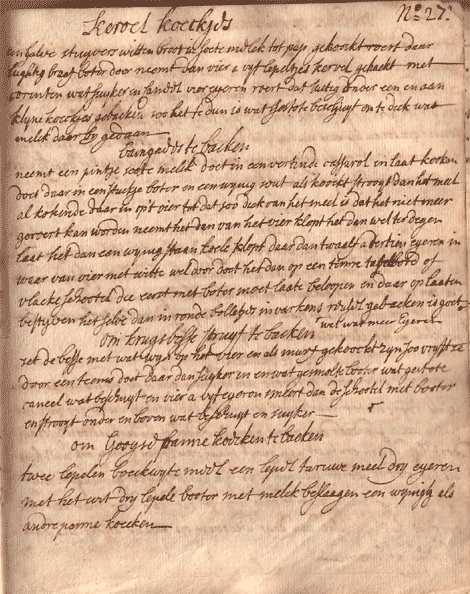 No 27
Kervel koeckjes
een halve stuyver witten broot in soete melck tot pap gekoockt roert daar
lughtig braef boter door neemt dan vier a vyf lepeltjes kervel gehackt met
corinten wat suyker en candeel vier eyeren roert dat lustig onder een en aan
klyne koeckjes gebacken soo het te dun is wat gestote beschuyt en te dick wat
melck daar by gedaan
te backen
neemt een pintje soete melck doet in een vertinde casserol en laat koocken
doet daar in een stuckje boter en een wynig sout als koockt stroygt dan het mel
al kokende daar in op 't vier tot dat soo dick van het meel is dat het niet meer
geroert kan worden neemt het dan van het vier klopt het dan wel te degen
laat het dan een wynig staan koele klopt daar dan twaalf a dertien eyeren in
waar van vier met witte wel door doet het dan op een tenne tafelbord of
vlacke schootel die eerst met boter moet laate belopen en daar op laaten
bestyven het selve dan in ronde bolletjes in varkens reusel gebacken is goet
wel wat meer Eyeren
om kruysbesse struyf te backen
set de besse met wat wyn op het vier en als murg gekoockt zyn soo vryft ze
door een teems doet daar dan suyker in en wat gesmolte boter wat gestote
caneel wat beschuyt en vier a vyf eyeren smeert dan de schootel met boter
en stroygt onder en boven wat beschuyt en suyker
om Gooyse panne koecken te backen
twee lepelen boeckwyte meel een lepel taruwe meel dry eyeren
met het wit dry lepele booter met melck beslaagen een wynigh als
andre panne koecken